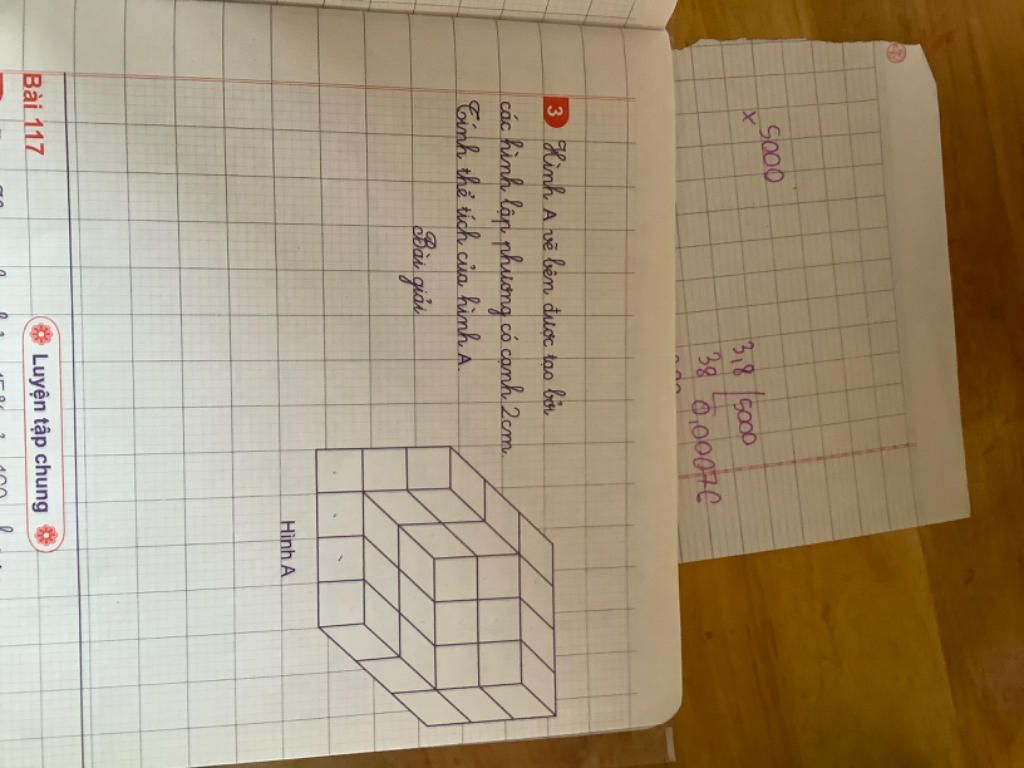 5000
x
3,8 5000
38 0,00076
3 Hình A vẽ bên được tạo bởi
các hình lập phương có cạnh 2cm.
Tính thể tích của hình A.
Bài giải
Hình A
Bài 117
Luyện tập chung